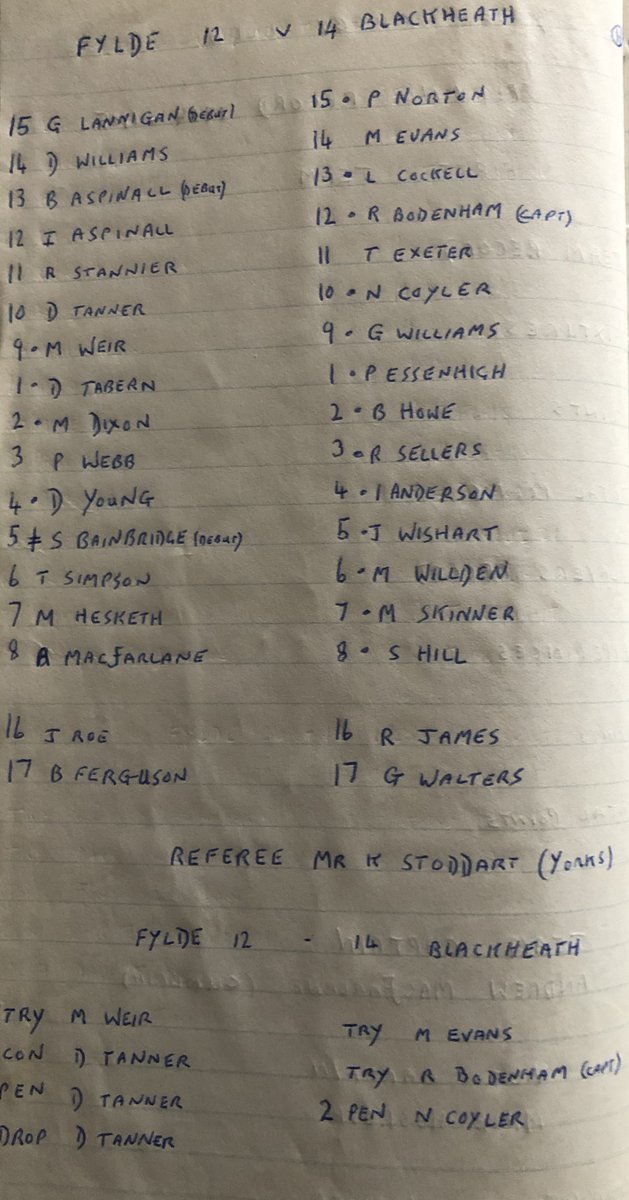 FYLDE 12 v 14 BLACKHEATH
15 G LANNIGAN (DEBUT)
14 D WILLIAMS
13 B ASPINALL (DEBUT)
12 I ASPINALL
11 R STANNIER
10 D TANNER
9 • M WEIR
1 • D TABERN
2 • M DIXON
3 P WEBB
4 • D YOUNG
5 ‡ S BAINBRIDGE (DEBUT)
6 T SIMPSON
7 M HESKETH
8 A MACFARLANE
16 J ROE
17 B FERGUSON
15 • P NORTON
14 M EVANS
13 • L COCKELL
12 • R BODENHAM (CAPT)
11 T EXETER
10 • N COYLER
9 • G WILLIAMS
1 • P ESSENHIGH
2 • B HOWE
3 • R SELLERS
4 • I ANDERSON
5 • J WISHART
6 • M WILLDEN
7 • M SKINNER
8 • S HILL
16 R JAMES
17 G WALTERS
REFEREE MR K STODDART (YORKS)
FYLDE 12 - 14 BLACKHEATH
TRY M WEIR
CON D TANNER
PEN D TANNER
DROP D TANNER
TRY M EVANS
TRY R BODENHAM (CAPT)
2 PEN N COYLER